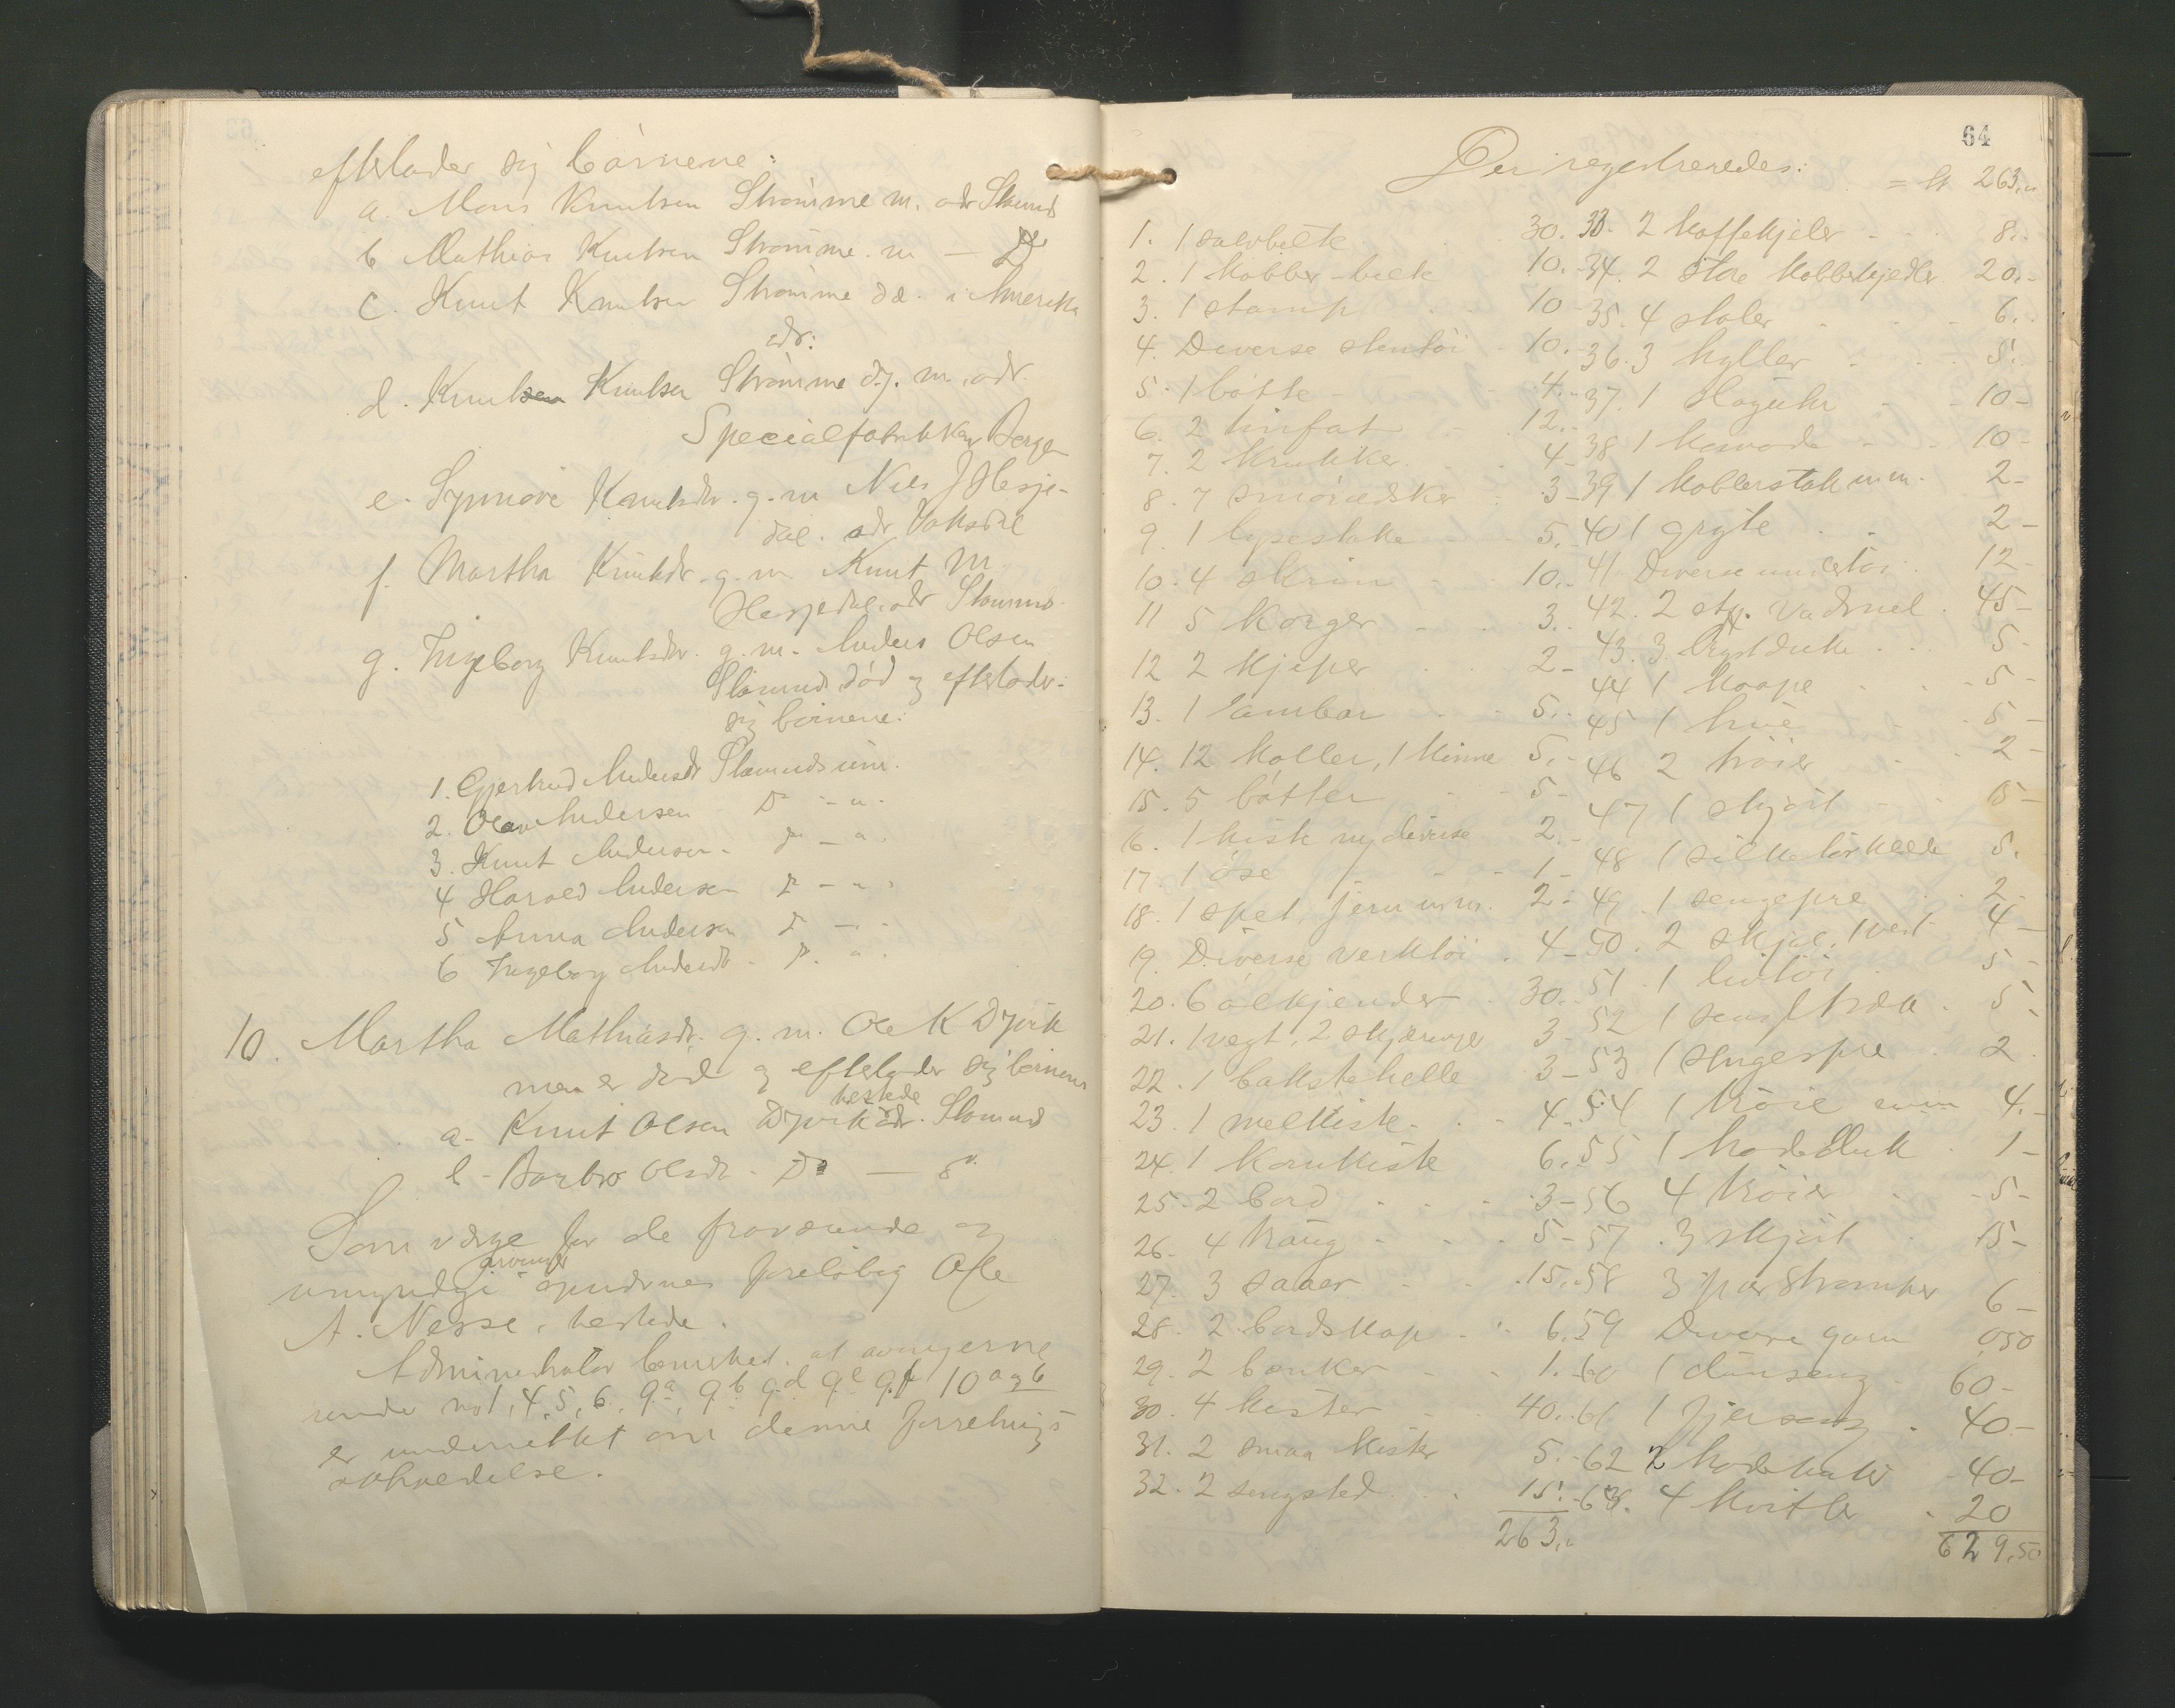 efterlader sig børnene:
a. Mons Knutsen Strømme m. adr Stamnes
b Mathias Knutsen Strømme. m — Do
c. Knut Knutsen Strømme d.æ. i Amerika
adr:
d. Knut Knutsen Strømme d.y. m. adr.
Specialfabrikken Bergen
e. Synnøve Knutsdtr. g. m Nils J Hesje-
dal. adr Vaksdal
f. Martha Knutsdtr. g. m. Knut M
Hesjedal. adr Stamnes
g. Ingeborg Knutsdtr. g. m. Anders Olsen
død og efterlader
sig børnene:
1. Gjertrud Andersdtr
2. Olav Andersen Do - " -
3. Knut Andersen. Do - " -
4 Harald Andersen Do - " -
5 Anna Andersen Do - " -
6 Ingeborg Andersdtr. Do " -
10. Martha Mathiasdtr. g. m. Ole K Dyvik
men er død og efterlader sig børnene
hestede
a. Knut Olsen Dyvik adr.
b - Barbro Olsdtr. Do —
Som værge for de fraværende og
arvinger
umyndige opnævnes foreløbig Ole
A. Nesse, herstede.
Administrator bemerket at arvingerne
under no 1, 4, 5, 6, 9a, 9b 9d 9e 9f 10 a og b
er underrettet om denne forretnings
avholdelse.
64
Der registreredes:
= kr 263,"
1. 1 sølvbelte 30.-
2. 1 kobber-belte 10.-
3. 1 stamp 10
4. Diverse stentøi 10.-
5. 1 bøtte 4.-
6. 2 tinfat 12.-
7. 2 krukker 4-
8. 7 smørædsker 3-
9. 1 lysestake 5.-
10. 4 skrin 10.-
11 5 korger 3.
12 2 kjeper 2-
13. 1 lambar 5.-
14. 12 koller, 1 kinne 5.-
15. 5 bøtter 5-
16. 1 kiste m/ diverse 2.-
17. 1 øse 1-
18. 1 spet, jern m.m. 2-
19. Diverse verktøi 4-
20. 6 ølkjender 30.-
21. 1 vegt, 2 skjæringer 3-
22. 1 bakstehelle 3-
23. 1 melkiste 4-
24. 1 kornkiste 6.-
25. 2 bord 3-
26. 4 traug 5-
27. 3 saaer 15.-
28. 2 bordskap 6.-
29. 2 bænker 1.-
30. 4 kister 40.-
31. 2 smaa kister 5.-
32. 2 sengsted 15.-
263,"
33. 2 kaffekjeler 8.-
34. 2 store kobberkjedler 20.-
35. 4 stoler 6.-
36. 3 hyller 5.-
37. 1 slaguhr 10-
38 1 10-
39 1 m.m. 2-
40 1 gryte 2-
41 Diverse 12-
42. 2 stk. vadmel 45-
43. 3 brystduke 5-
44 1 kaape 5-
45 1 hue 5-
46 2 trøier 2-
47 1 skjørt 15-
48 1 silketørklæde 5.
49. 1 2-
50. 2 skjal, 1 vest 4-
51. 1 livtøi 5-
52 1 5-
53 1 2.
54 1 trøie 4.-
55 1 hodeduk 1-
56 4 trøier 5-
57. 3 skjørt 15-
58 3 par strømper 6-
59 Diverse garn 0,50
60 1 dunseng 60-
61 1 fjærseng 40-
62 2 40-
63. 4 kvitler 20
629,50